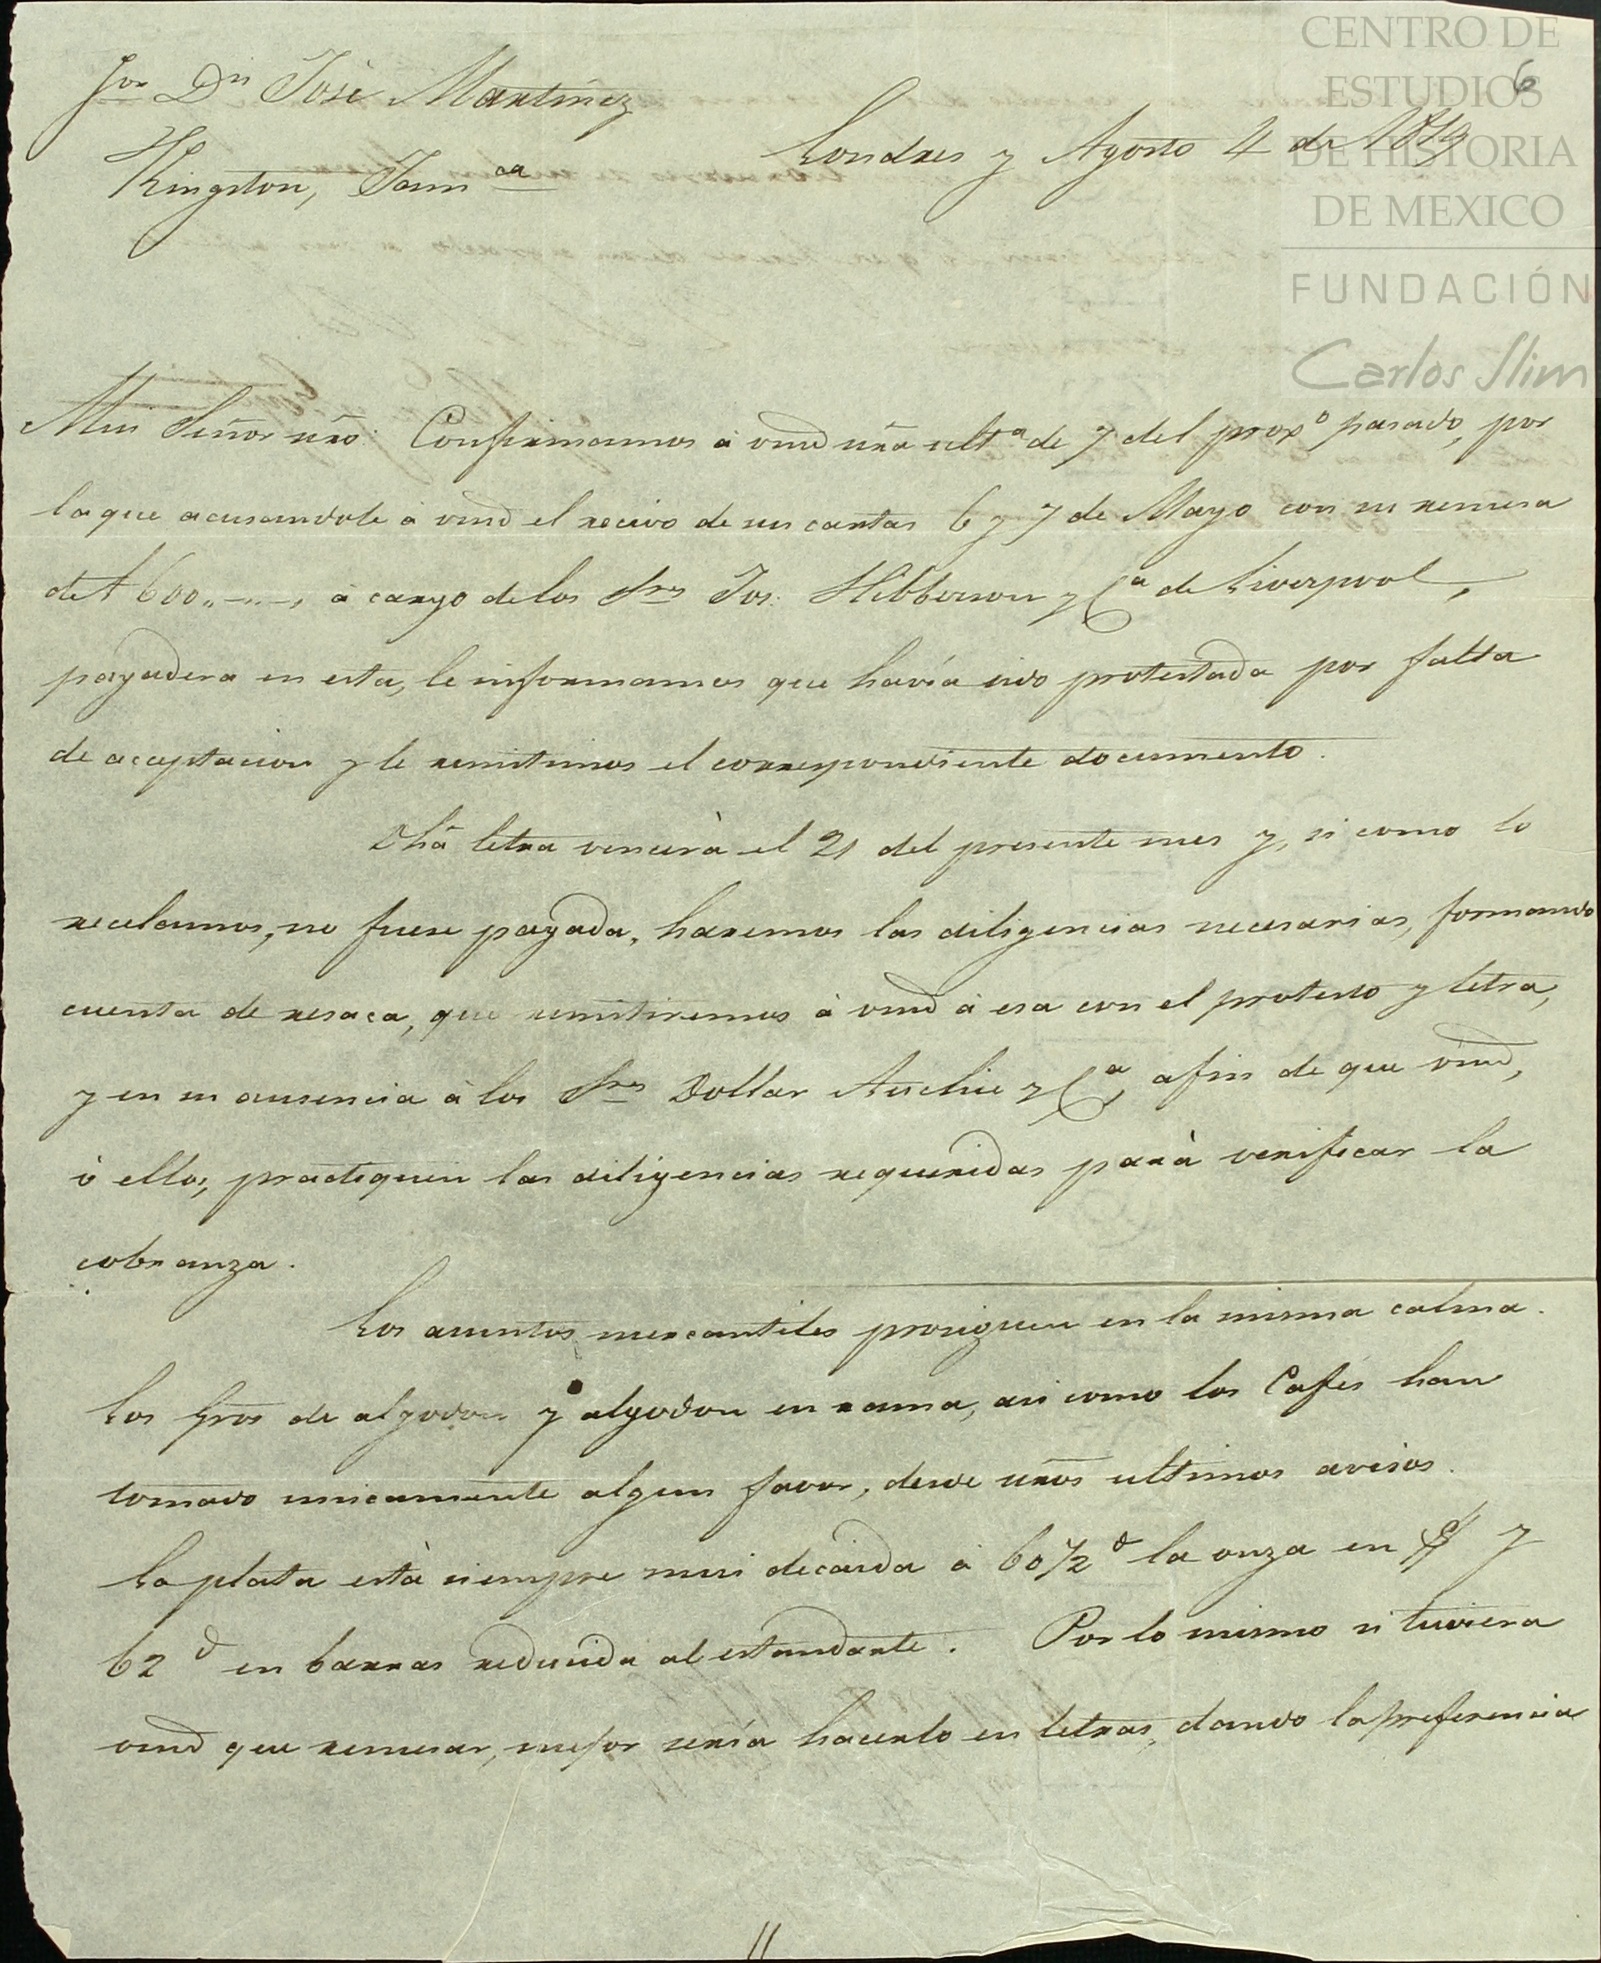 CENTRO DE
ESTUDIOS
DE HISTORIA
DE MEXICO
FUNDACIÓN
Carlos Slim
6
Sor Dn José Martínez
Londres y Agosto 4 de 1819
Kingston, Jamca
Mui Señor nro: Confirmamos à vmd nra ulta de 7 del proxo pasado, por
la que acusandole à vmd el recivo de sus cartas 6 y 7 de Mayo con su remesa
de £ 600,,-,,-, à cargo de los Sres Jos: Hibberson y Ca de Liverpool,
pagadera en esta, le informamos que havía sido protestada por falta
de acceptacion y le remitimos el correspondiente documento.
Dha letra vencerà el 21 del presente mes y, si como lo
recelamos, no fuere pagada, haremos las diligencias necesarias, formando
cuenta de resaca, que remitiremos à vmd à esa con el protesto y letra,
y en su ausencia à los Sres Dollar Auchie y Ca, afin de que vmd,
ò ellos, practiquen las diligencias requeridas parà verificar la
cobranza.
Los asuntos mercantiles prosiguen en la misma calma.
Los gros de algodon y algodon en rama, asi como los Cafés han
tomado unicamente algun favor, desde nros ultimos avisos.
La plata està siempre mui decaida à 60 1/2 d la onza en $ y
62 d en barras reducida al estandarte. Por lo mismo si tuviera
vmd que remesar, mejor sería hacerlo en letras, dando la preferencia